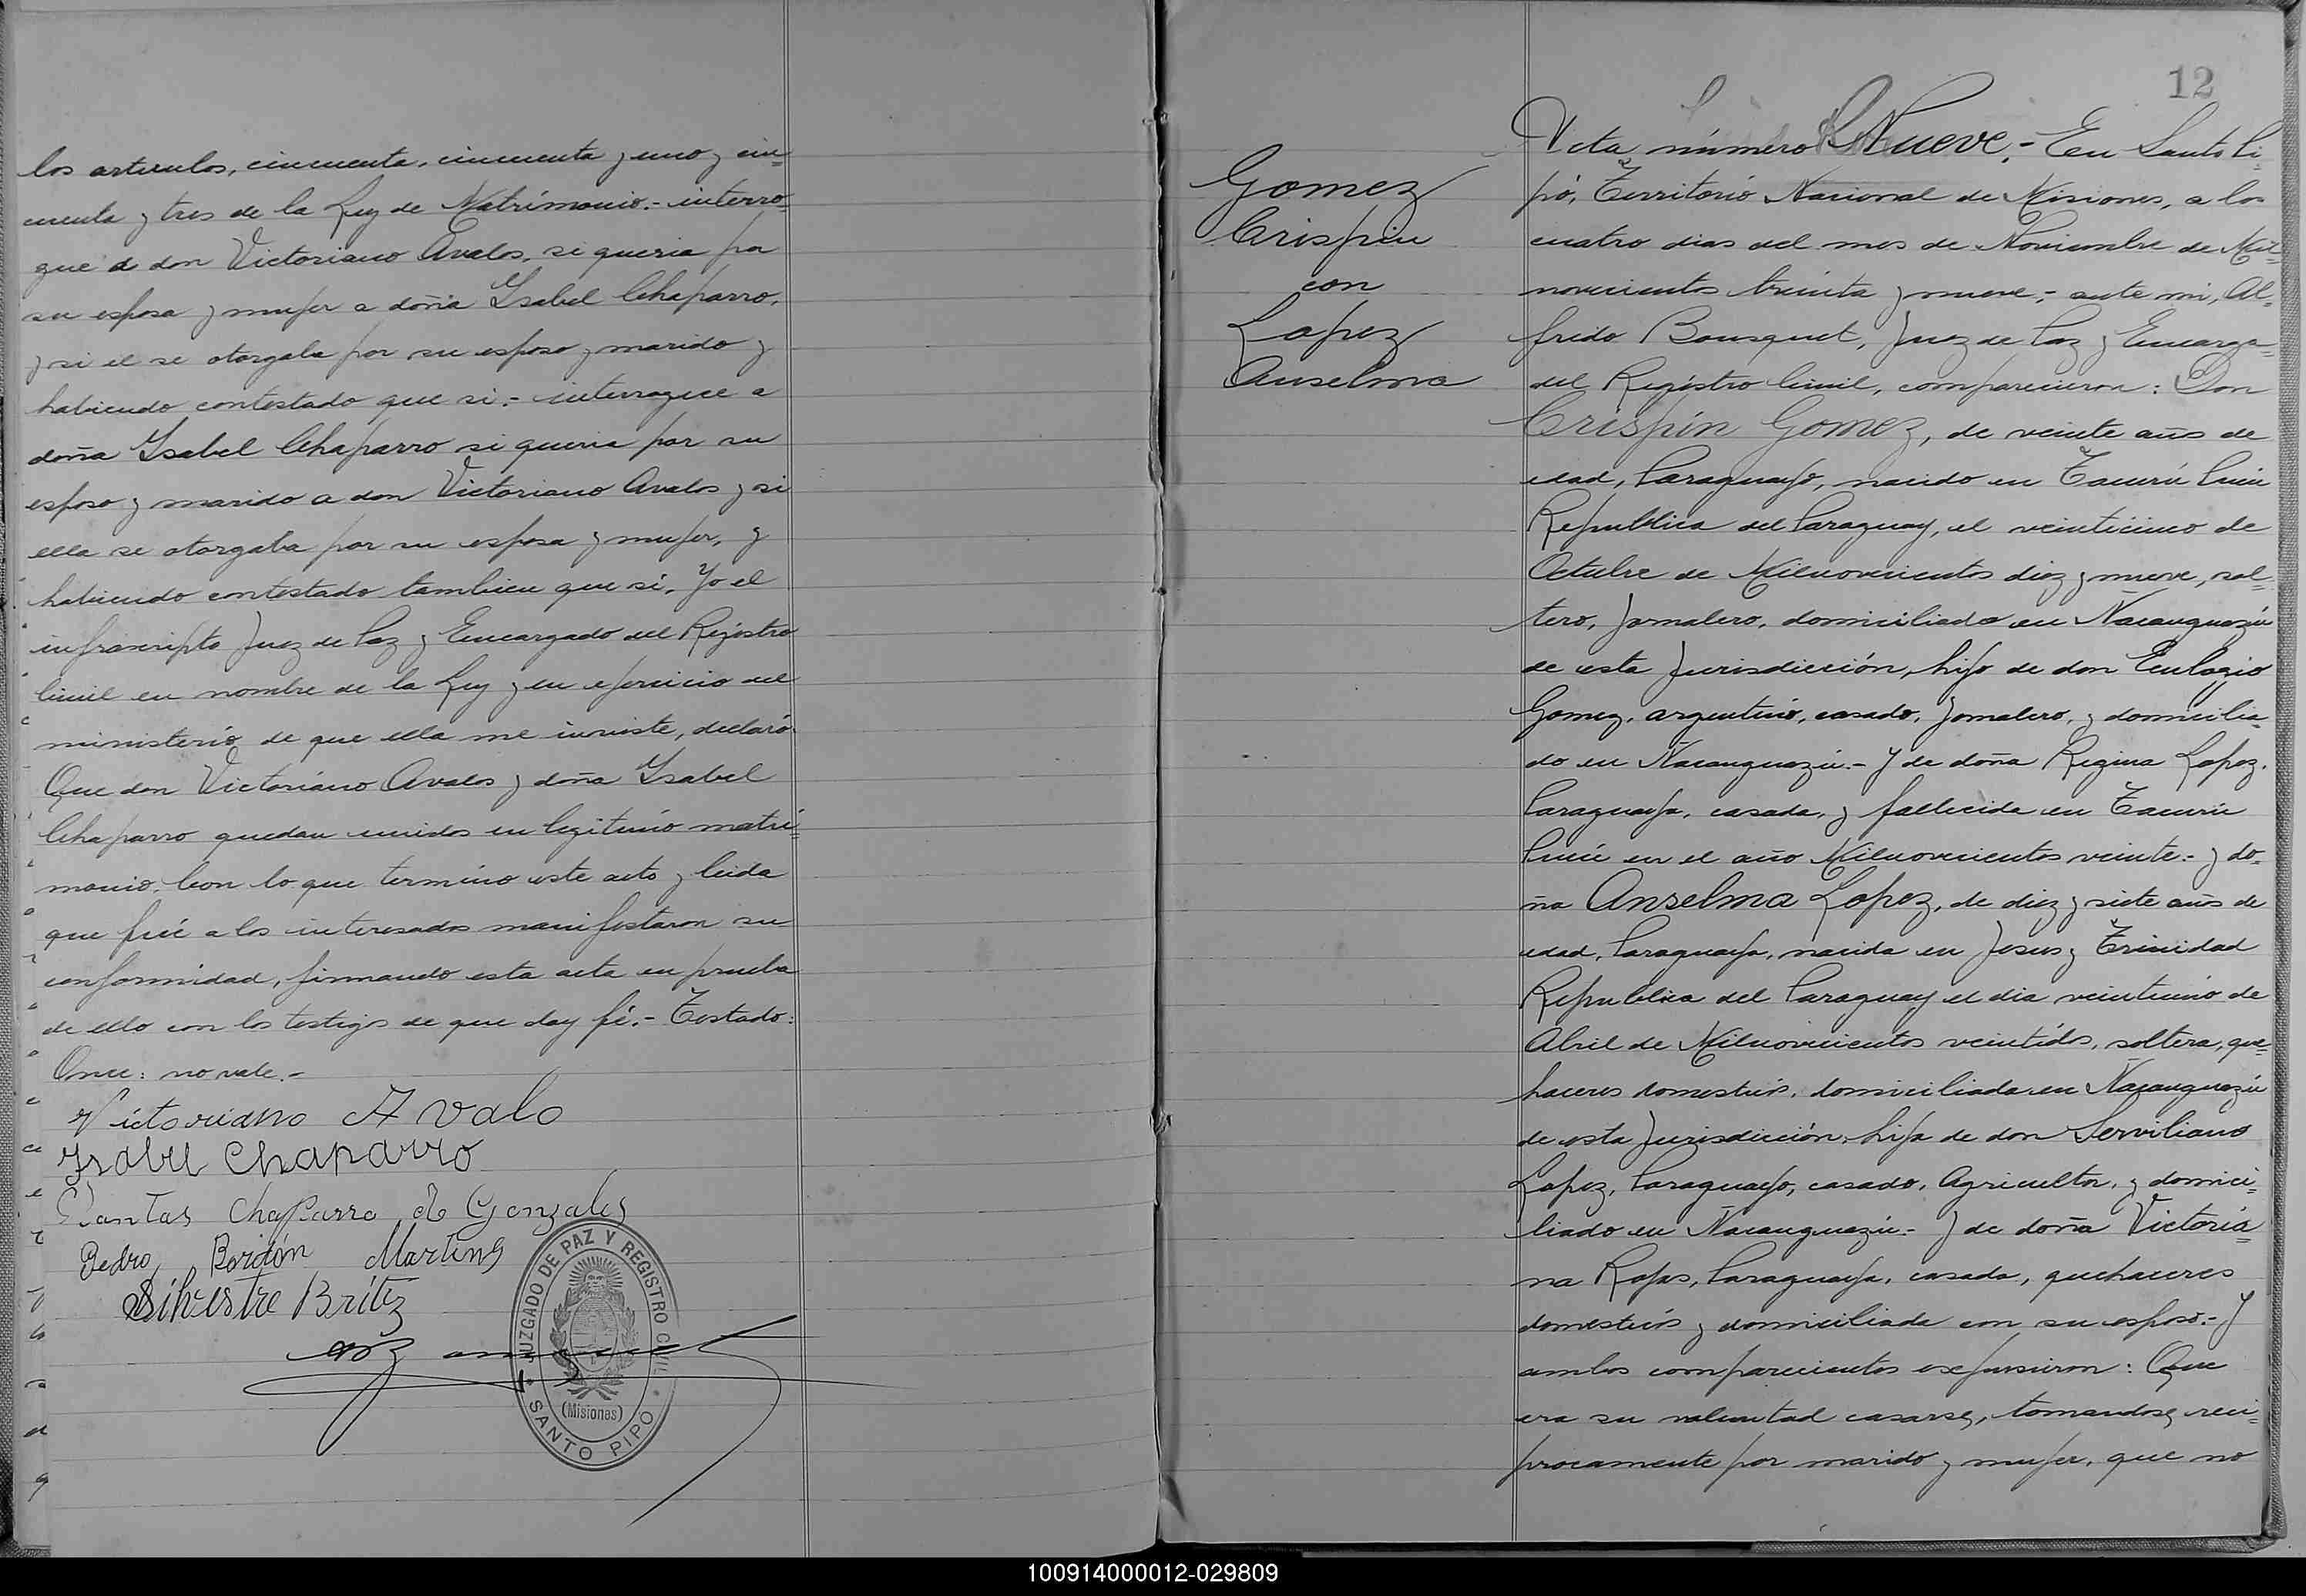 los articulos, cincuenta, cincuenta y uno y cin=
cuenta y tres de la Ley de Matrimonio.- interro=
gue a don Victoriano Avalos, si queria por
su esposa y mujer a doña Ysabel Chaparro,
y si el se otorgaba por su esposo y marido y
habiendo contestado que si.- interrogue a
doña Ysabel Chaparro si queria por su
esposo y marido a don Victoriano Avalos y si
ella se otorgaba por su esposa y mujer, y
habiendo contestado tambien que si, Yo el
infrascripto Juez de Paz y Encargado del Registro
Civil en nombre de la Ley y en ejercicio del
ministerio de que ella me inviste, declaró.
Que don Victoriano Avalos y doña Ysabel
Chaparro quedan unidos en legitimo matri=
monio. Con lo que termino este acto y leida
que fué a los interesados manifestaron su
conformidad, firmando esta acta en prueba
de ello con los testigos de que doy fé.- Testado:
Once: no vale.-
Victoriano Avalo
Ysabel Chaparro
Santas Chaparro de Gonzales
Pedro Bordón Martins
Silvestre Britez
JUZGADO DE PAZ Y REGISTRO CIVIL
(Misiones)
SANTO PIPO
12
Gomez
Crispin
con
Lopez
Anselma
Acta número Nueve.- En Santo Pi=
pó, Territorio Nacional de Misiones, a los
cuatro dias del mes de Noviembre de Mil=
novecientos treinta y nueve,- ante mi, Al=
fredo Bousquet, Juez de Paz y Encarga=
del Registro Civil, comparecieron: Don
Crispín Gomez, de veinte años de
edad, Paraguayo, nacido en Tacurú Pucú
Republica del Paraguay, el veinticinco de
Octubre de Milnovecientos diez y nueve, sol=
tero, Jornalero, domiciliado en Ñacanguazú
de esta Jurisdicción, hijo de don Eulogio
Gomez, argentino, casado, Jornalero, y domicilia=
do en Ñacanguazú.- Y de doña Regina Lopez.
Paraguaya, casada, y fallecida en Tacurú
Pucú en el año Milnovecientos veinte.- y do=
ña Anselma Lopez, de diez y siete años de
edad, Paraguaya, nacida en Jesus y Trinidad
Republica del Paraguay el dia veintiuno de
Abril de Milnovecientos veintidós, soltera, que=
haceres domesticos, domiciliada en Ñacanguazú
de esta Jurisdicción, hija de don Serviliano
Lopez, Paraguayo, casado, Agricultor, y domici=
liado en Ñacanguazú.- Y de doña Victoria=
na Rojas, Paraguaya, casada, quehaceres
domesticos y domiciliada con su esposo.- Y
ambos comparecientes expusieron: Que
era su voluntad casarse, tomandose reci=
procamente por marido y mujer, que no
100914000012-029809